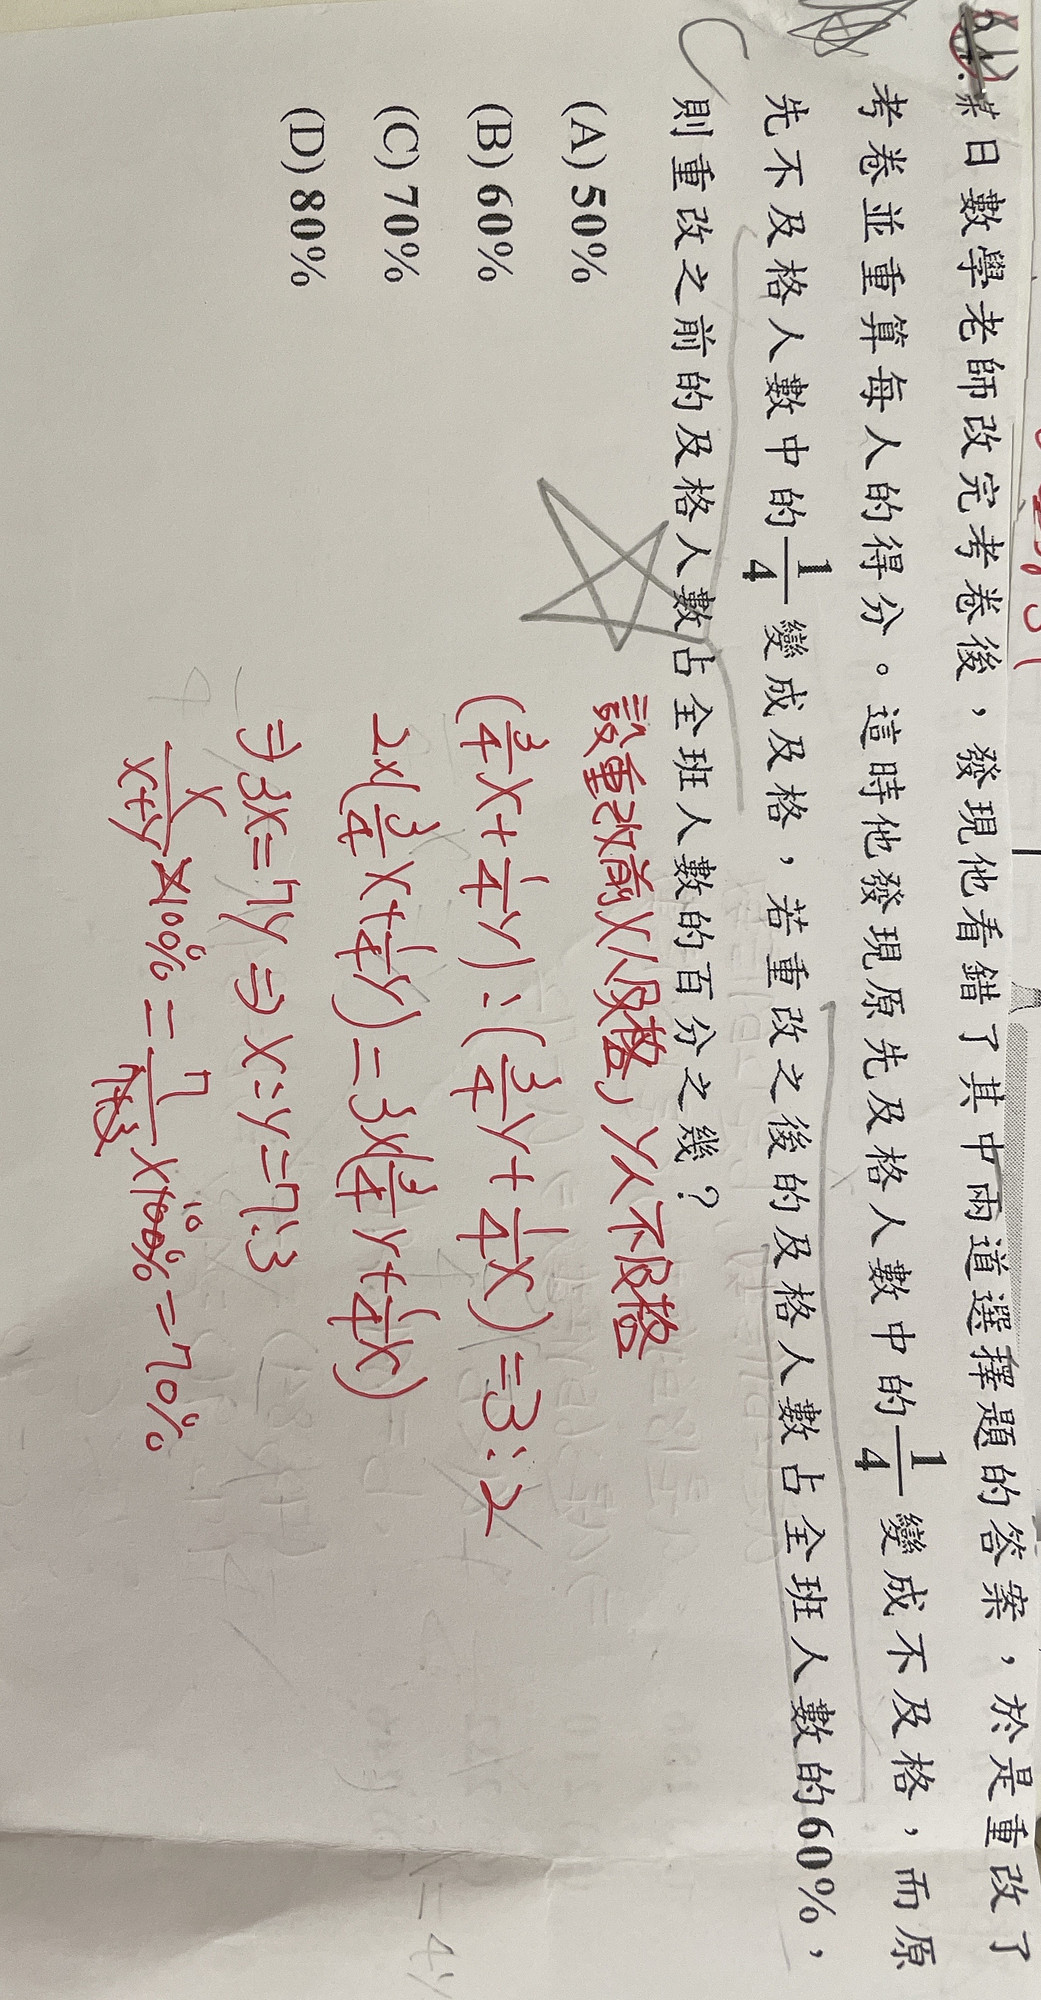 某日數學老師改完考卷後，發現他看錯了其中兩道選擇題的答案，於是重改了
考卷並重算每人的得分。這時他發現原先及格人數中的1/4變成不及格，而原
先不及格人數中的1/4變成及格，若重改之後的及格人數占全班人數的60%，
則重改之前的及格人數占全班人數的百分之幾？
C
(A) 50%
(B) 60%
(C) 70%
(D) 80%
設重改前X人及格，y人不及格
(3/4 x + 1/4 y) : (3/4 y + 1/4 x) = 3 : 2
2×(3/4 x + 1/4 y) = 3×(3/4 y + 1/4 x)
⇒ 3x = 7y ⇒ x : y = 7 : 3
x/(x+y) × 100% = 7/(7+3) × 100% = 70%